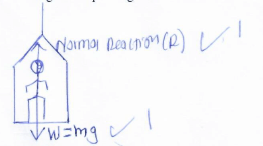 Normal Reaction (R) ✓ 1
W=mg ✓ 1